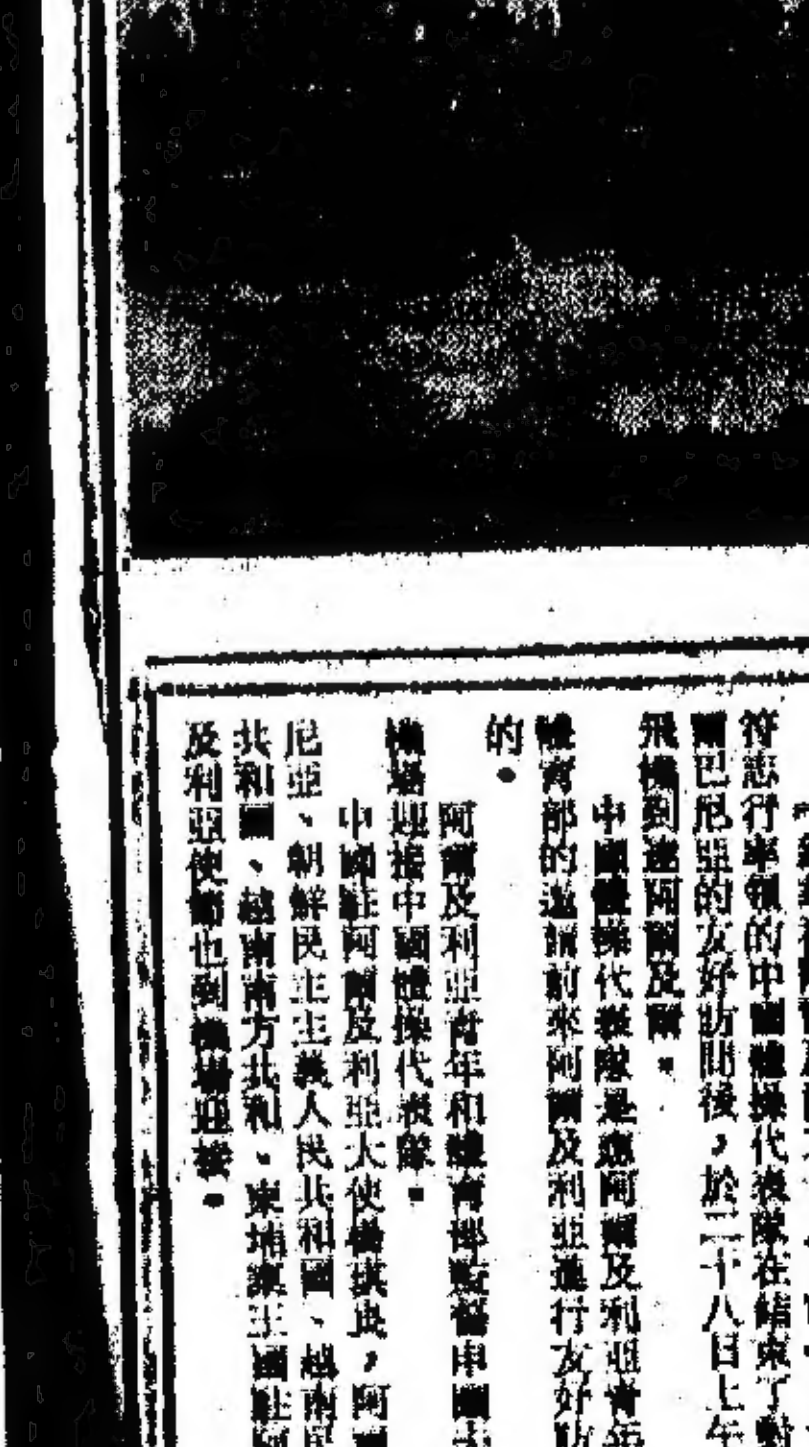 符志行率領的中國體操代表隊在結束了對
爾巴尼亞的友好訪問後，於二十八日上午
飛機到達阿爾及爾。
中國體操代表隊是應阿爾及利亞青年
體育部的邀請前來阿爾及利亞進行友好訪
的。
阿爾及利亞青年和體育部
機場迎接中國體操代表隊。
中國駐阿爾及利亞大使，阿爾
尼亞、朝鮮民主主義人民共和國、越南民
共和國、越南南方共和、柬埔寨王國駐阿
及利亞使節也到機場迎接。